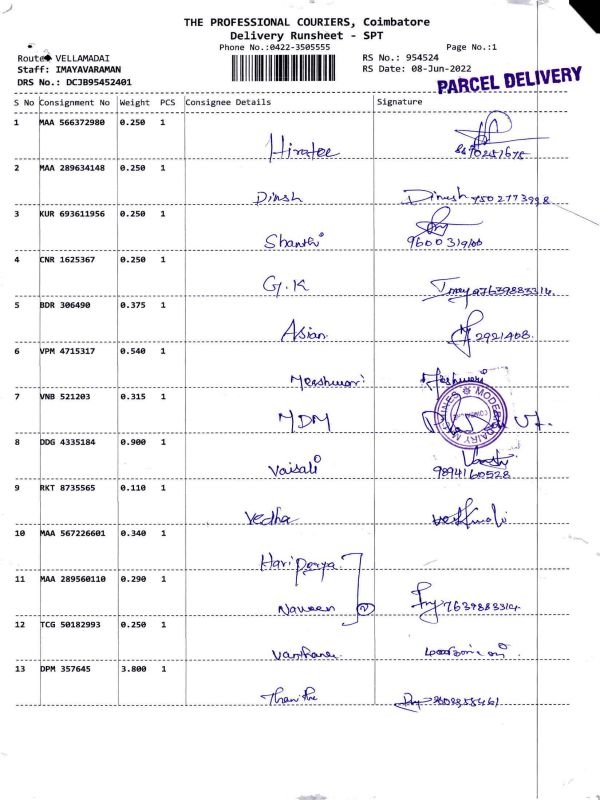 THE PROFESSIONAL COURIERS, Coimbatore
Delivery Runsheet - SPT
Phone No.:0422-3505555 Page No.:1
Route: VELLAMADAI RS No.: 954524
Staff: IMAYAVARAMAN RS Date: 08-Jun-2022
DRS No.: DCJB95452401
PARCEL DELIVERY
S No Consignment No Weight PCS Consignee Details Signature
1 MAA 566372980 0.250 1
2 MAA 289634148 0.250 1
Dinsh Dinesh 9502773998
3 KUR 693611956 0.250 1
Shanthi
4 CNR 1625367 0.250 1
G.K 97639883314
5 BDR 306490 0.375 1
Asian 2921408
6 VPM 4715317 0.540 1
7 VNB 521203 0.315 1
MDM
MODERN DAIRY MACHINES
8 DDG 4335184 0.900 1
Vaisali 9894160528
9 RKT 8735565 0.110 1
Vedha
10 MAA 567226601 0.340 1
Hari
11 MAA 289560110 0.290 1
Naveen 7639883314
12 TCG 50182993 0.250 1
13 DPM 357645 3.800 1